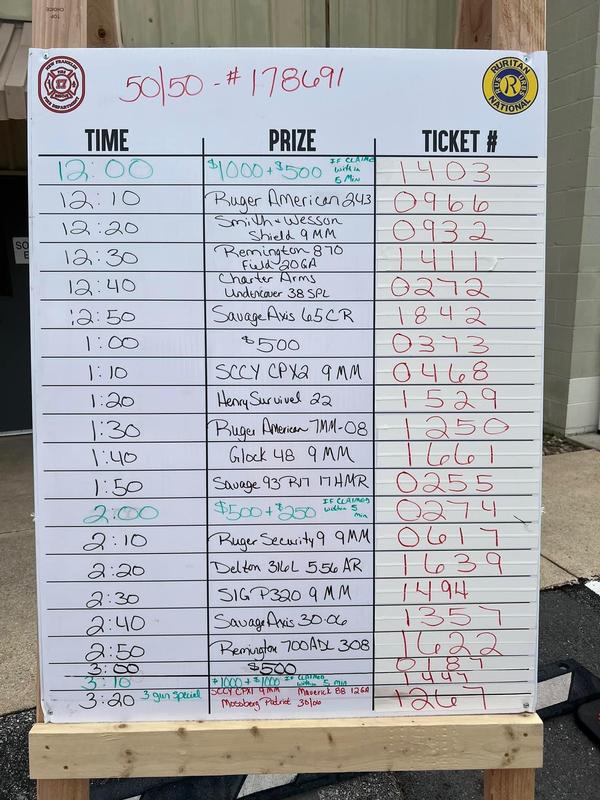 TOP
CHOICE
NEW FRANKLIN
FIRE
17
FIRE DEPARTMENT
50/50 - # 178691
RURITAN
NATIONAL
R
TIME PRIZE TICKET #
12:00 $1000 + $500 IF CLAIMED within 5 Min 1403
12:10 Ruger American 243 0966
12:20 Smith & Wesson Shield 9MM 0932
12:30 Remington 870 Field 20GA 1411
12:40 Charter Arms Undercover 38 SPL 0272
12:50 Savage Axis 6.5 CR 1842
1:00 $500 0373
1:10 SCCY CPX2 9MM 0468
1:20 Henry Survivel 22 1529
1:30 Ruger American 7MM-08 1250
1:40 Glock 48 9MM 1661
1:50 Savage 93R17 17HMR 0255
2:00 $500 + $250 IF CLAIMED within 5 min 0274
2:10 Ruger Security 9 9MM 0617
2:20 Delton 316L 5.56 AR 1639
2:30 SIG P320 9MM 1494
2:40 Savage Axis 30-06 1357
2:50 Remington 700ADL 308 1622
3:00 $500 0187
3:10 $1000 + $1000 IF CLAIMED within 5 min 1447
3:20 3 gun special SCCY CPX1 9MM Maverick 88 12GA 1267
Mossberg Patriot 30/06